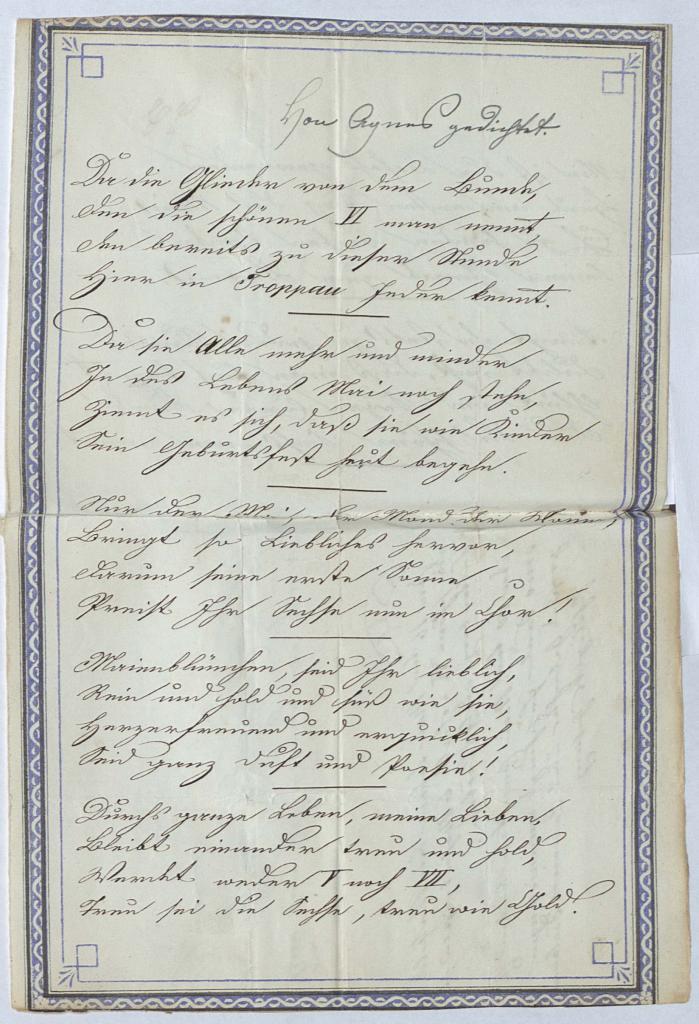 Von Agnes gedichtet.
Da die Glieder von dem Bunde,
Den die schönen VI man nennt,
Den bereits zu dieser Stunde
Hier in Troppau Jeder kennt.
Da sie Alle mehr und minder
In des Lebens Mai noch stehn,
Ziemt es sich, daß sie wie Kinder
Sein Geburtsfest heut begehn.
Nur der Mai, der Mond der Wonne,
Bringt so Liebliches hervor,
Darum seine erste Sonne
Preist Ihr Sechse nun im Chor!
Maienblümchen, seid Ihr lieblich,
Rein und hold und süß wie sie,
Herzerfreuend und erquicklich,
Seid ganz Duft und Poesie!
Durchs ganze Leben, meine Lieben,
Bleibt einander treu und hold,
Werdet weder V noch VII,
Treu sei die Sechse, treu wie Gold!